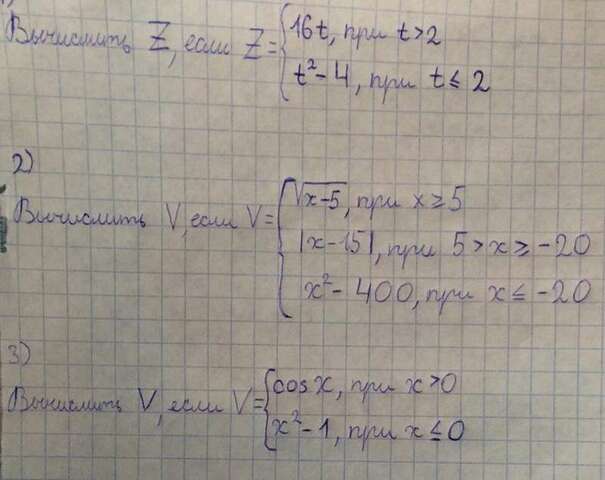 Вычислить Z, если Z = { 16t, при t > 2
t² - 4, при t ≤ 2
2)
Вычислить V, если V = { √x-5, при x ≥ 5
|x-15|, при 5 > x ≥ -20
x² - 400, при x ≤ -20
3)
Вычислить V, если V = { cos x, при x > 0
x² - 1, при x ≤ 0